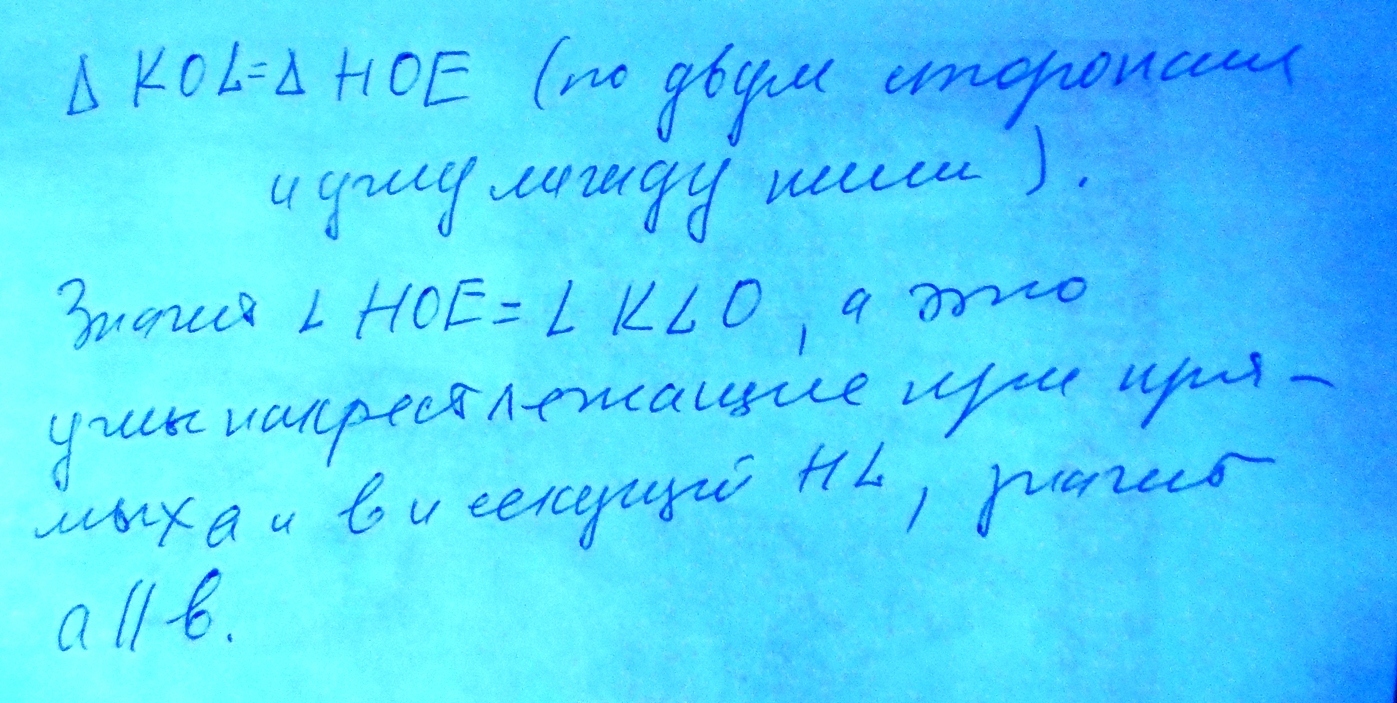 Δ KOL=Δ HOE (по двум сторонам
и углу между ними).
Значит ∠ HOE=∠ KLO, а это
углы накрест лежащие при пря-
мых a и b и секущий HL, значит
a || b.